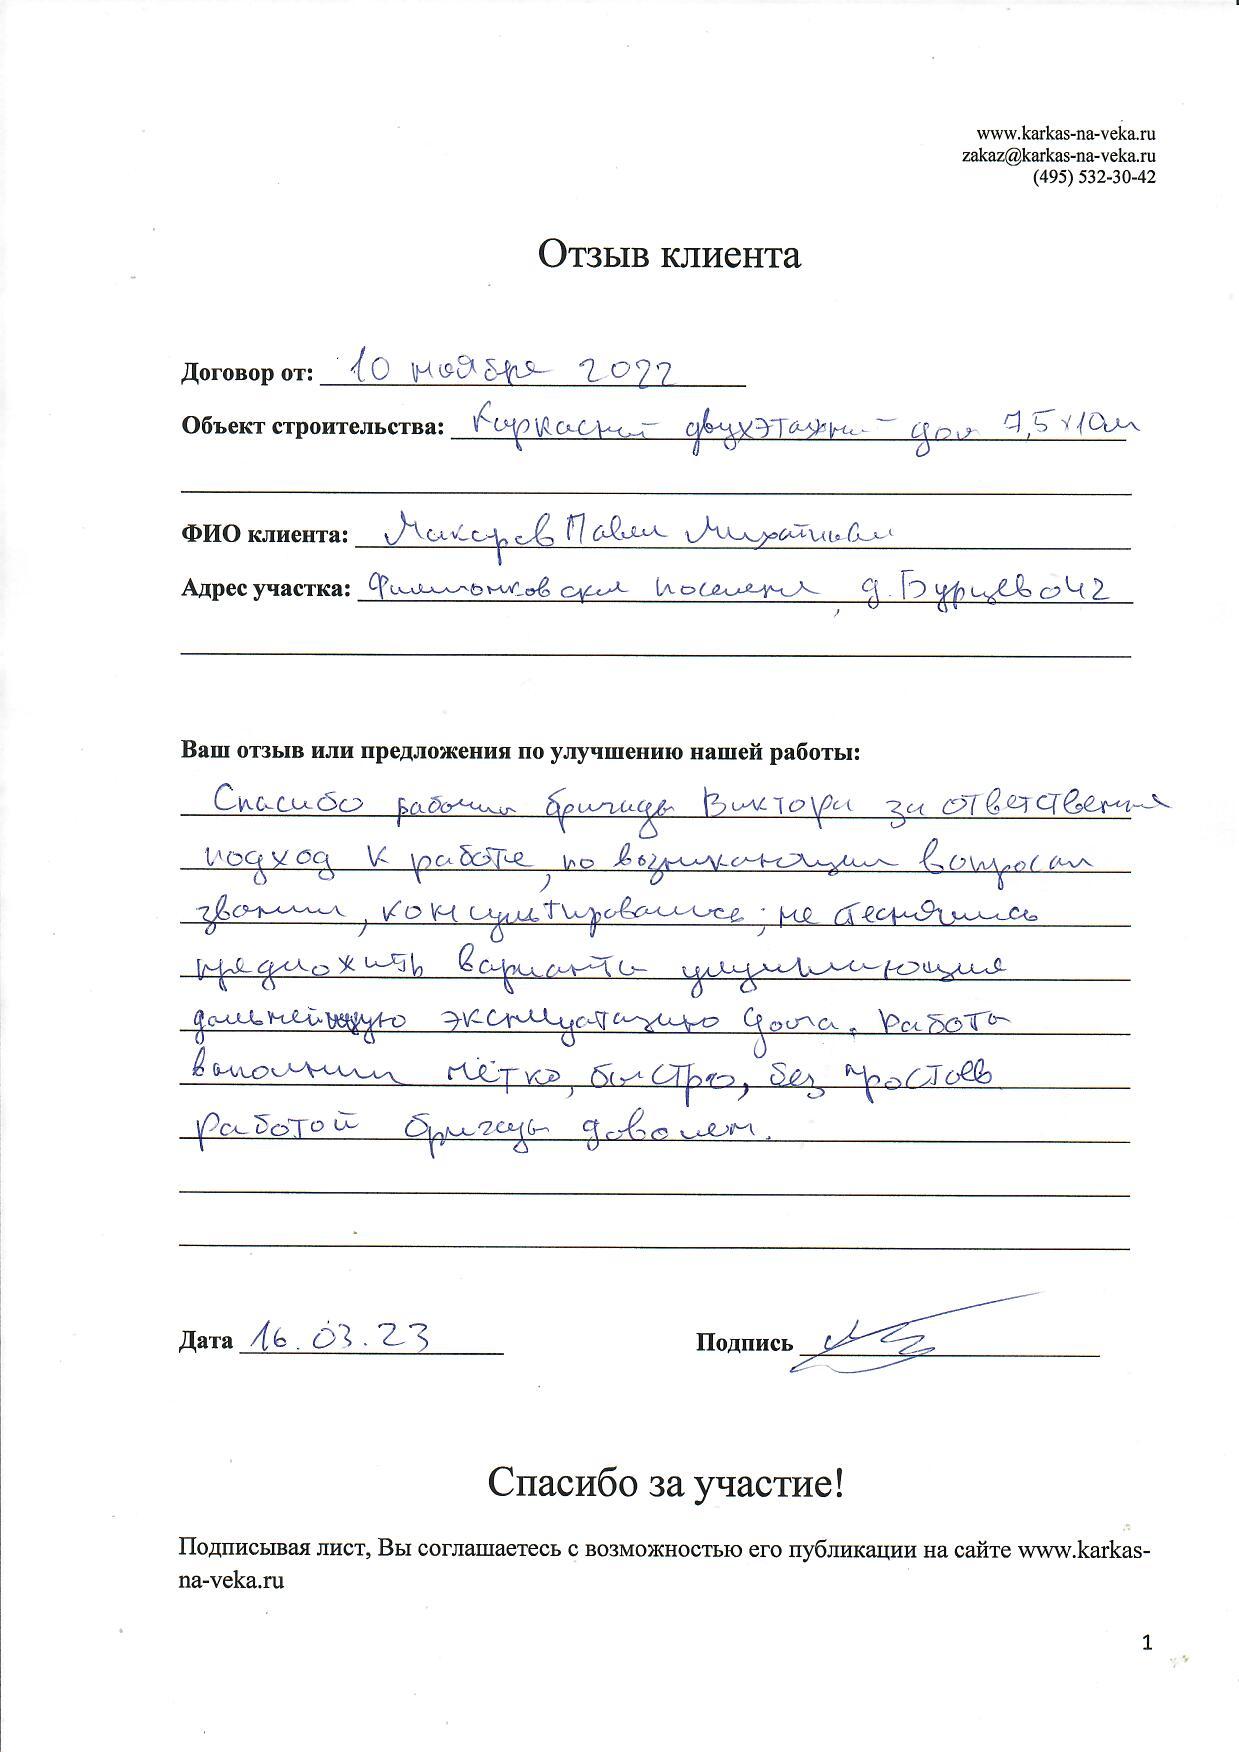 www.karkas-na-veka.ru
zakaz@karkas-na-veka.ru
(495) 532-30-42
Отзыв клиента
Договор от: 10 ноября 2022
Объект строительства: Каркасный двухэтажный дом 7,5х10м
ФИО клиента: Павел Михайлович
Адрес участка: поселение, д. Бурцево
Ваш отзыв или предложения по улучшению нашей работы:
Спасибо рабочим бригады Виктора за ответственный
подход к работе, по возникающим вопросам
звонили, консультировались, не стеснялись
предложить варианты улучшающие
дальнейшую эксплуатацию дома. Работы
выполнили чётко, быстро, без простоев
работой бригады доволен.
Дата 16.03.23 Подпись
Спасибо за участие!
Подписывая лист, Вы соглашаетесь с возможностью его публикации на сайте www.karkas-
na-veka.ru
1